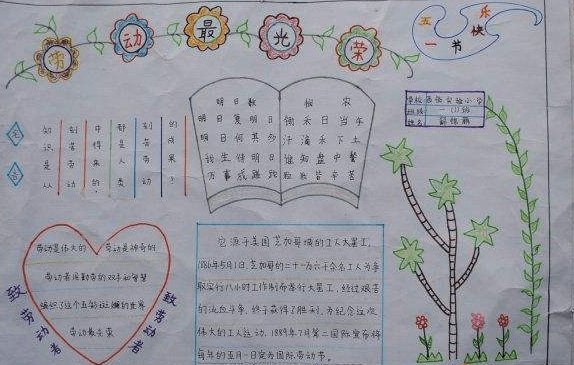 劳动最光荣
五一节快乐
学校
班级 一(1)班
姓名
名言
知识是从
刻苦劳动
中得来的,
都是人类
刻苦劳动
的成果。
明日歌
明日复明日
明日何其多
我生待明日
万事成蹉跎
悯农
锄禾日当午
汗滴禾下土
谁知盘中餐
粒粒皆辛苦
劳动是伟大的 劳动是神奇的
劳动者用勤劳的双手和智慧
编织了这个五彩斑斓的世界
劳动最光荣
致劳动者
致劳动者
它源于美国芝加哥城的工人大罢工,
1886年5月1日,芝加哥的二十一万六千余名工人为争
取实行八小时工作制而举行大罢工,经过艰苦
的流血斗争,终于获得了胜利,为纪念这次
伟大的工人运动,1889年7月第二国际宣布将
每年的五月一日定为国际劳动节。